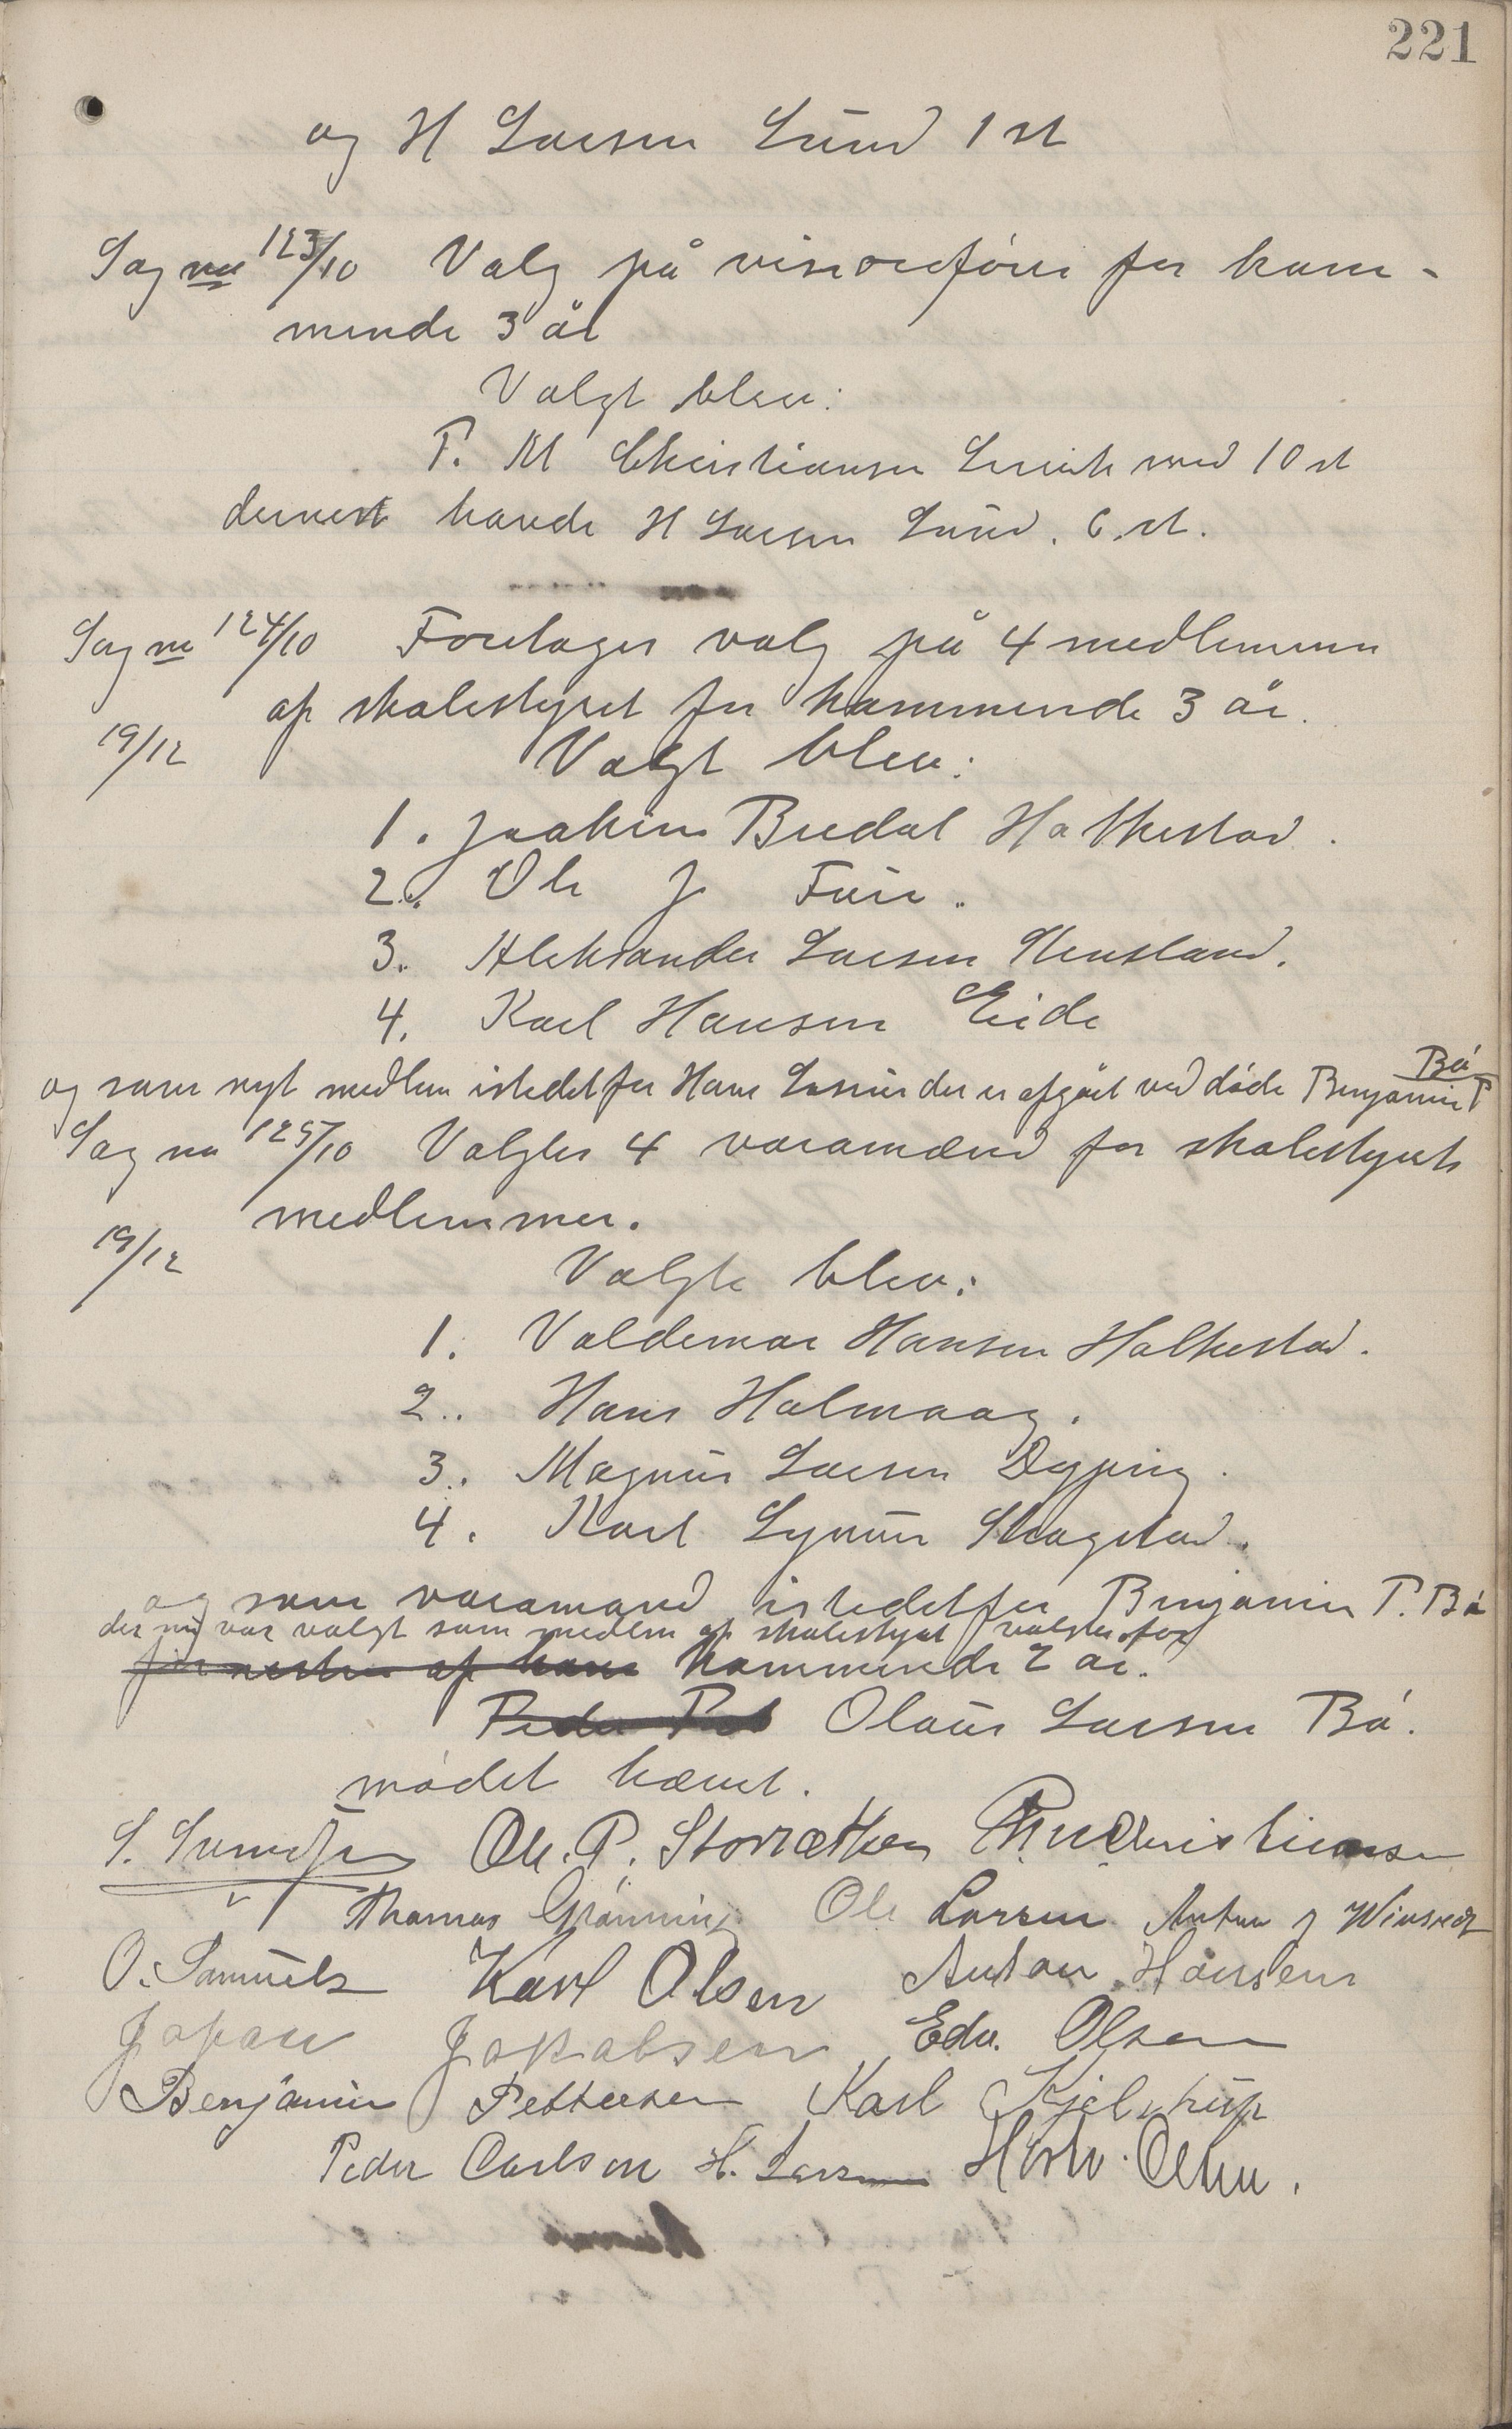 221
og H Larsen Lund 1 st
Sag no 123/10 Valg på viseordfører for kom-
mende 3 år
Valgt blev:
P. M Christiansen med 10 st
dernest havde H Larsen Lund. 6. st.
Sag no 124/10 Foretages valg på 4 medlemmer
af skolestyret for kommende 3 år.
19/12 Valgt blev:
1. Joakim Bredal Halkestad.
2. Ole J Fure.
3. Aleksander Larsen Stensland.
4. Karl Hansen Eide
og som nyt medlem istedetfor Hans der er afgået ved døde Benjamin P Bø
Sag no 125/10 Valgtes 4 varamænd for skolestyrets
medlemmer.
19/12
Valgte blev:
1. Valdemar Hansen Halkestad.
2. Hans Holmaag.
3. Magnus Larsen Dyping.
4. Karl Skagstad.
og som varamand istedetfor Benjamin P. Bø
der nu var valgt som medlem af skolestyret valgtes for
for resten af hans kommende 2 år.
Peder Olaus Larsen Bø.
mødet hævet.
Ole. P. Storræthen P. M Christiansen
Thomas Grønning Ole Larsen Anton J
O. Samuels Karl Olsen Anton Hansen
Johan Jakobsen Edv. Olsen
Benjamin Pettersen Karl Kjelstrup
Peder Carlsen H. Larsen